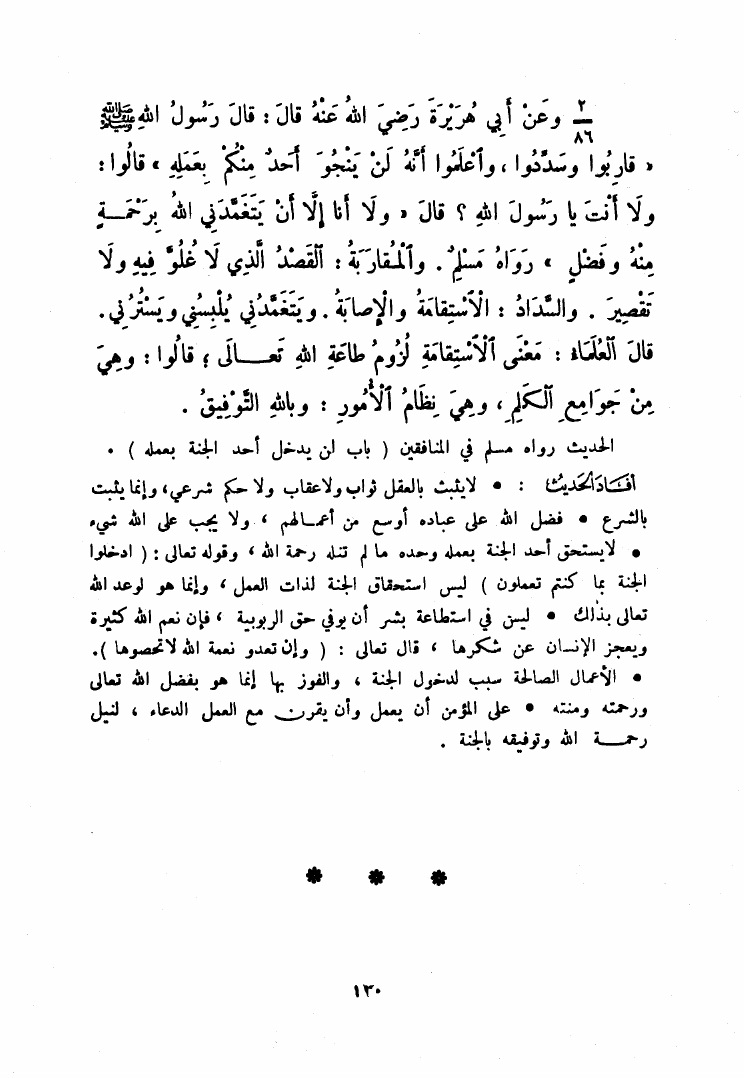 ٢
٨٦ وعَنْ أَبِي هُرَيْرَةَ رَضِيَ اللهُ عَنْهُ قالَ : قالَ رَسُولُ اللهِ ﷺ
« قارِبُوا وسَدِّدُوا ، وٱعْلَمُوا أَنَّهُ لَنْ يَنْجُوَ أَحَدٌ مِنْكُمْ بِعَمَلِهِ » قالُوا :
ولَا أَنْتَ يا رَسُولَ اللهِ ؟ قالَ « ولَا أَنا إِلَّا أَنْ يَتَغَمَّدَنِي اللهُ بِرَحْمَـةٍ
مِنْهُ وفَضْلٍ » رَوَاهُ مُسْلِمٌ . وٱلْمُقارَبَةُ : ٱلْقَصْدُ الَّذِي لَا غُلُوَّ فِيهِ ولَا
تَقْصِيرَ . والسَّدَادُ : ٱلْاسْتِقامَةُ والْإِصابَةُ . ويَتَغَمَّدُنِي يُلْبِسُنِي ويَسْتُرُنِي .
قالَ ٱلْعُلَمَاءُ : مَعْنَى ٱلْاسْتِقامَةِ لُزُومُ طاعَةِ اللهِ تَعَـــالَى ؛ قالُوا : وهِيَ
مِنْ جَوَامِعِ ٱلْكَلِمِ ، وهِيَ نِظَامُ ٱلْأُمُورِ : وبِاللهِ التَّوْفِيقُ .
الحديث رواه مسلم في المنافقين ( باب لن يدخل أحد الجنة بعمله ) .
أفـادَ الحَديث : • لايثبت بالعقل ثواب ولاعقاب ولا حكم شرعي، وإنما يثبت
بالشرع • فضل الله على عباده أوسع من أعمـالهم ، ولا يجب على الله شيء
• لايستحق أحد الجنة بعمله وحده ما لم تنله رحمة الله ، وقوله تعالى : ( ادخلوا
الجنة بما كنتم تعملون ) ليس استحقاق الجنة لذات العمل ، وإنما هو لوعد الله
تعالى بذلك • ليس في استطاعة بشر أن يوفي حق الربوبية ، فإن نعم الله كثيرة
ويعجز الإنسان عن شكرها ، قال تعالى : ( وإن تعدو نعمة الله لاتحصوها ).
• الأعمال الصالحة سبب لدخول الجنة ، والفوز بها إنما هو بفضل الله تعالى
ورحمته ومنته • على المؤمن أن يعمل وأن يقرن مع العمل الدعاء ، لنيل
رحمـــة الله وتوفيقه بالجنة .
١٢٠